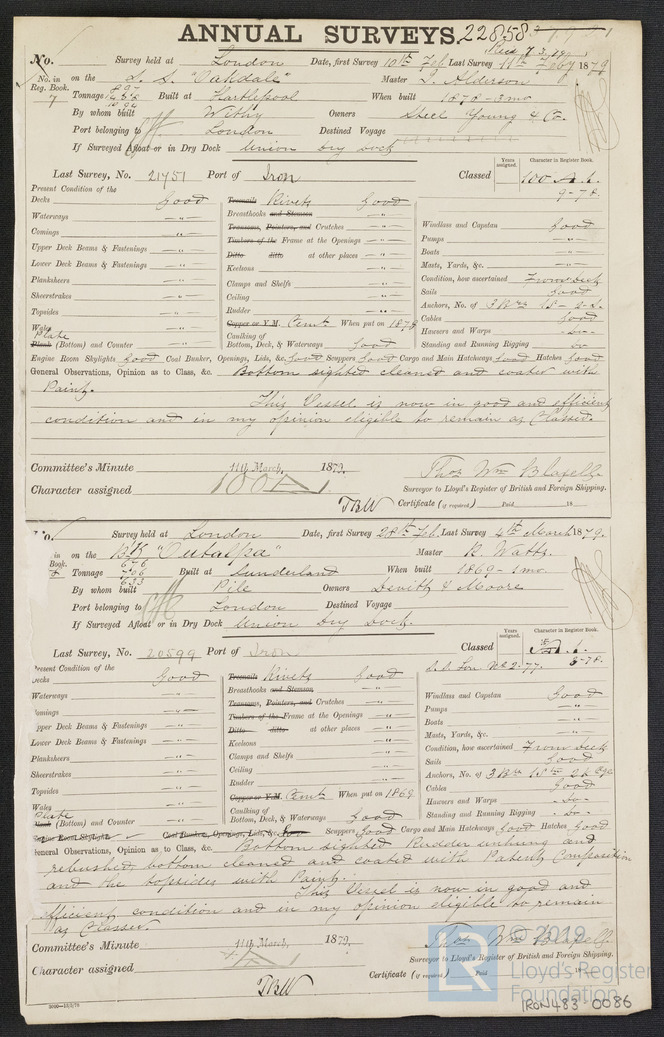 ANNUAL SURVEYS. 22858
Recd 7.3.79
No. Survey held at London Date, first Survey 10th Feb Last Survey 11th Feby 1879
No. in on the S.S. "Oakdale" Master Alderson
Reg. Book.
7 Tonnage Built at Hartlepool When built 1878 - 3mo
By whom built Withy Owners Steel Young & Co.
Port belonging to London Destined Voyage
If Surveyed Afloat or in Dry Dock Union Dry Dock
Last Survey, No. 21751 Port of Iron Classed
Years assigned.
Character in Register Book.
100 A.1.
9-78.
Present Condition of the
Decks good
Waterways -"-
Comings -"-
Upper Deck Beams & Fastenings -"-
Lower Deck Beams & Fastenings -"-
Planksheers -"-
Sheerstrakes -"-
Topsides -"-
Wales -"-
Plate
Plank (Bottom) and Counter -"-
Treenails Rivets good
Breasthooks and Stemson -"-
Transoms, Pointers, and Crutches -"-
Timbers of the Frame at the Openings -"-
Ditto ditto at other places -"-
Keelsons -"-
Clamps and Shelfs -"-
Ceiling -"-
Rudder -"-
Copper or Y.M. Cemt. When put on 1878
Caulking of
Bottom, Deck, & Waterways good
Windlass and Capstan good
Pumps -"-
Boats -"-
Masts, Yards, &c. -"-
Condition, how ascertained From deck
Sails good
Anchors, No. of 3 Brs 1S - 2 K.
Cables good
Hawsers and Warps - Do -
Standing and Running Rigging Do
Engine Room Skylights good Coal Bunker, Openings, Lids, &c. good Scuppers good Cargo and Main Hatchways good Hatches good
General Observations, Opinion as to Class, &c. Bottom sighted cleaned and coated with
Paint.
This Vessel is now in good and efficient
condition and in my opinion eligible to remain as Classed.
Committee's Minute 11th March, 1879.
Character assigned 100A1
Thos Wm Blafell.
Surveyor to Lloyd's Register of British and Foreign Shipping.
TBW Certificate (if required) Paid 18
No. Survey held at London Date, first Survey 28th Feb. Last Survey 4th March 1879.
in on the Bk "Outalpa" Master R. Watts.
Book.
676
Tonnage 706 Built at Sunderland When built 1869 - 1mo.
633
By whom built Pile Owners Devitt & Moore
Port belonging to London Destined Voyage
If Surveyed Afloat or in Dry Dock Union Dry Dock.
Last Survey, No. 20599 Port of Iron Classed
Years assigned.
Character in Register Book.
A.1.
S.S. Lon No 2-77. 5-78.
Present Condition of the
Decks good
Waterways -"-
Comings -"-
Upper Deck Beams & Fastenings -"-
Lower Deck Beams & Fastenings -"-
Planksheers -"-
Sheerstrakes -"-
Topsides -"-
Wales -"-
Plate
Plank (Bottom) and Counter -"-
Treenails Rivets good
Breasthooks and Stemson -"-
Transoms, Pointers, and Crutches -"-
Timbers of the Frame at the Openings -"-
Ditto ditto at other places -"-
Keelsons -"-
Clamps and Shelfs -"-
Ceiling -"-
Rudder -"-
Copper or Y.M. Cemt When put on 1869
Caulking of
Bottom, Deck, & Waterways good
Windlass and Capstan good
Pumps -"-
Boats -"-
Masts, Yards, &c. -"-
Condition, how ascertained From deck
Sails good
Anchors, No. of 3 Brs 1S 2K
Cables good
Hawsers and Warps - Do -
Standing and Running Rigging - Do -
Engine Room Skylights Coal Bunkers, Openings, Lids, &c. Scuppers good Cargo and Main Hatchways good Hatches good
General Observations, Opinion as to Class, &c. Bottom sighted Rudder unhung and
rebushed, bottom cleaned and coated with Patent Composition
and the topsides with Paint.
This Vessel is now in good and
efficient condition and in my opinion eligible to remain
as Classed.
Committee's Minute 11th March, 1879.
Character assigned
Thos Wm Blafell.
Surveyor to Lloyd's Register of British and Foreign Shipping.
TBW Certificate (if required) Paid 18
© 2019
LR Lloyd's Register
Foundation
IRON483-0086